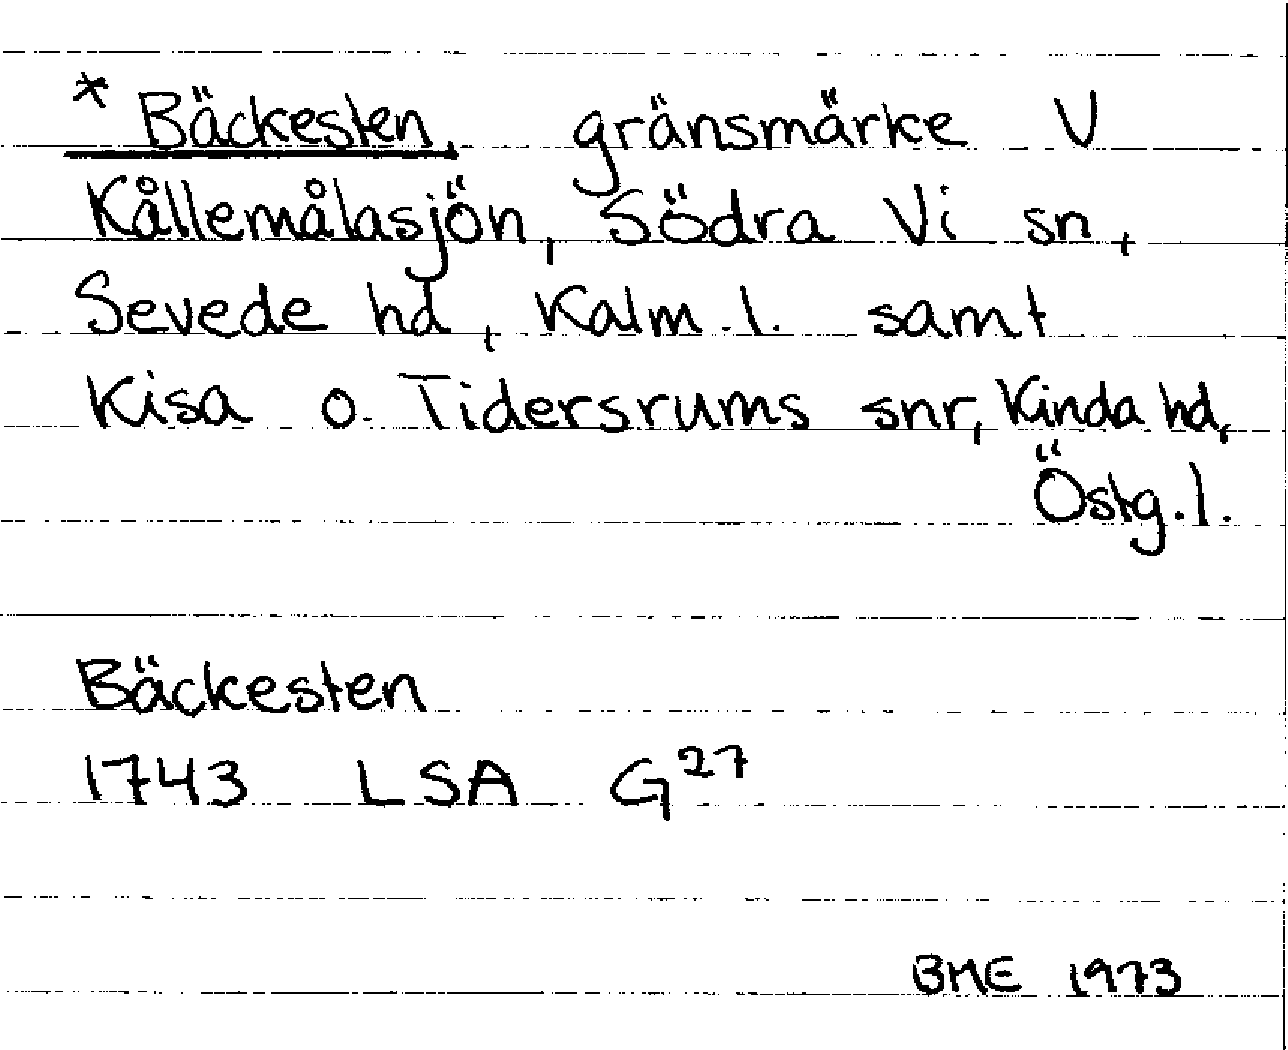 * Bäckesten, gränsmärke V
Kållemålasjön, Södra Vi sn,
Sevede hd, Kalm. l. samt
Kisa o. Tidersrums snr, Kinda hd,
Östg. l.
Bäckesten
1743 LSA G²⁷
BME 1973